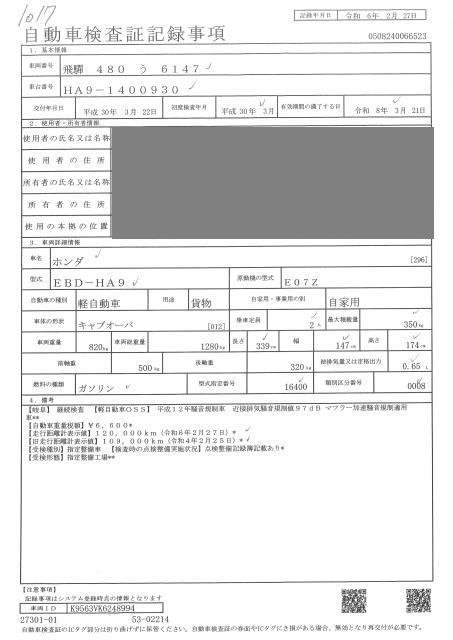 1017
自動車検査証記録事項
記録年月日 令和 6年 2月 27日
0508240066523
1. 基本情報
車両番号 飛騨 480 う 6147
車台番号 HA9-1400930
交付年月日 平成 30年 3月 22日 初度検査年月 平成 30年 3月 有効期間の満了する日 令和 8年 3月 21日
2. 使用者・所有者情報
使用者の氏名又は名称
使用者の住所
所有者の氏名又は名称
所有者の住所
使用の本拠の位置
3. 車両詳細情報
車名 ホンダ [296]
型式 EBD-HA9 原動機の型式 E07Z
自動車の種別 軽自動車 用途 貨物 自家用・事業用の別 自家用
車体の形状 キャブオーバ [012] 乗車定員 2人 最大積載量 350kg
車両重量 820kg 車両総重量 1280kg 長さ 339cm 幅 147cm 高さ 174cm
前軸重 500kg 後軸重 320kg 総排気量又は定格出力 0.65 L
燃料の種類 ガソリン 型式指定番号 16400 類別区分番号 0008
4. 備考
【岐阜】 継続検査 【軽自動車OSS】 平成12年騒音規制車 近接排気騒音規制値97dB マフラー加速騒音規制適用
車**
【自動車重量税額】¥6,600*
【走行距離計表示値】120,000km(令和6年2月27日)*
【旧走行距離計表示値】109,000km(令和4年2月25日)*
【受検種別】指定整備車 【検査時の点検整備実施状況】点検整備記録簿記載あり*
【受検形態】指定整備工場**
【注意事項】
記録事項はシステム登録時点の情報となります
車両ID K9563VK6248994
27301-01 53-02214
自動車検査証のICタグ部分は折り曲げずに保管ください。自動車検査証の券面やICタグにき損がある場合、無効となり再交付が必要です。